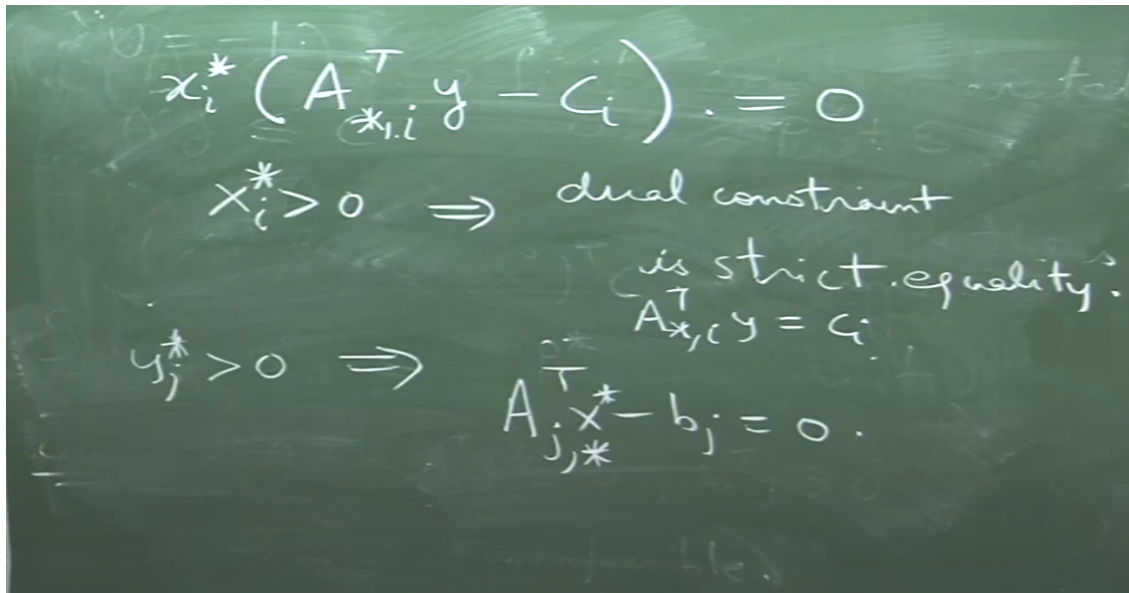 x_i^* (A_{*,i}^T y - c_i). = 0
x_i^* > 0 ⇒ dual constraint
is strict equality.
A_{*,i}^T y = c_i
y_j^* > 0 ⇒
A_{j,*}^T x^* - b_j = 0.